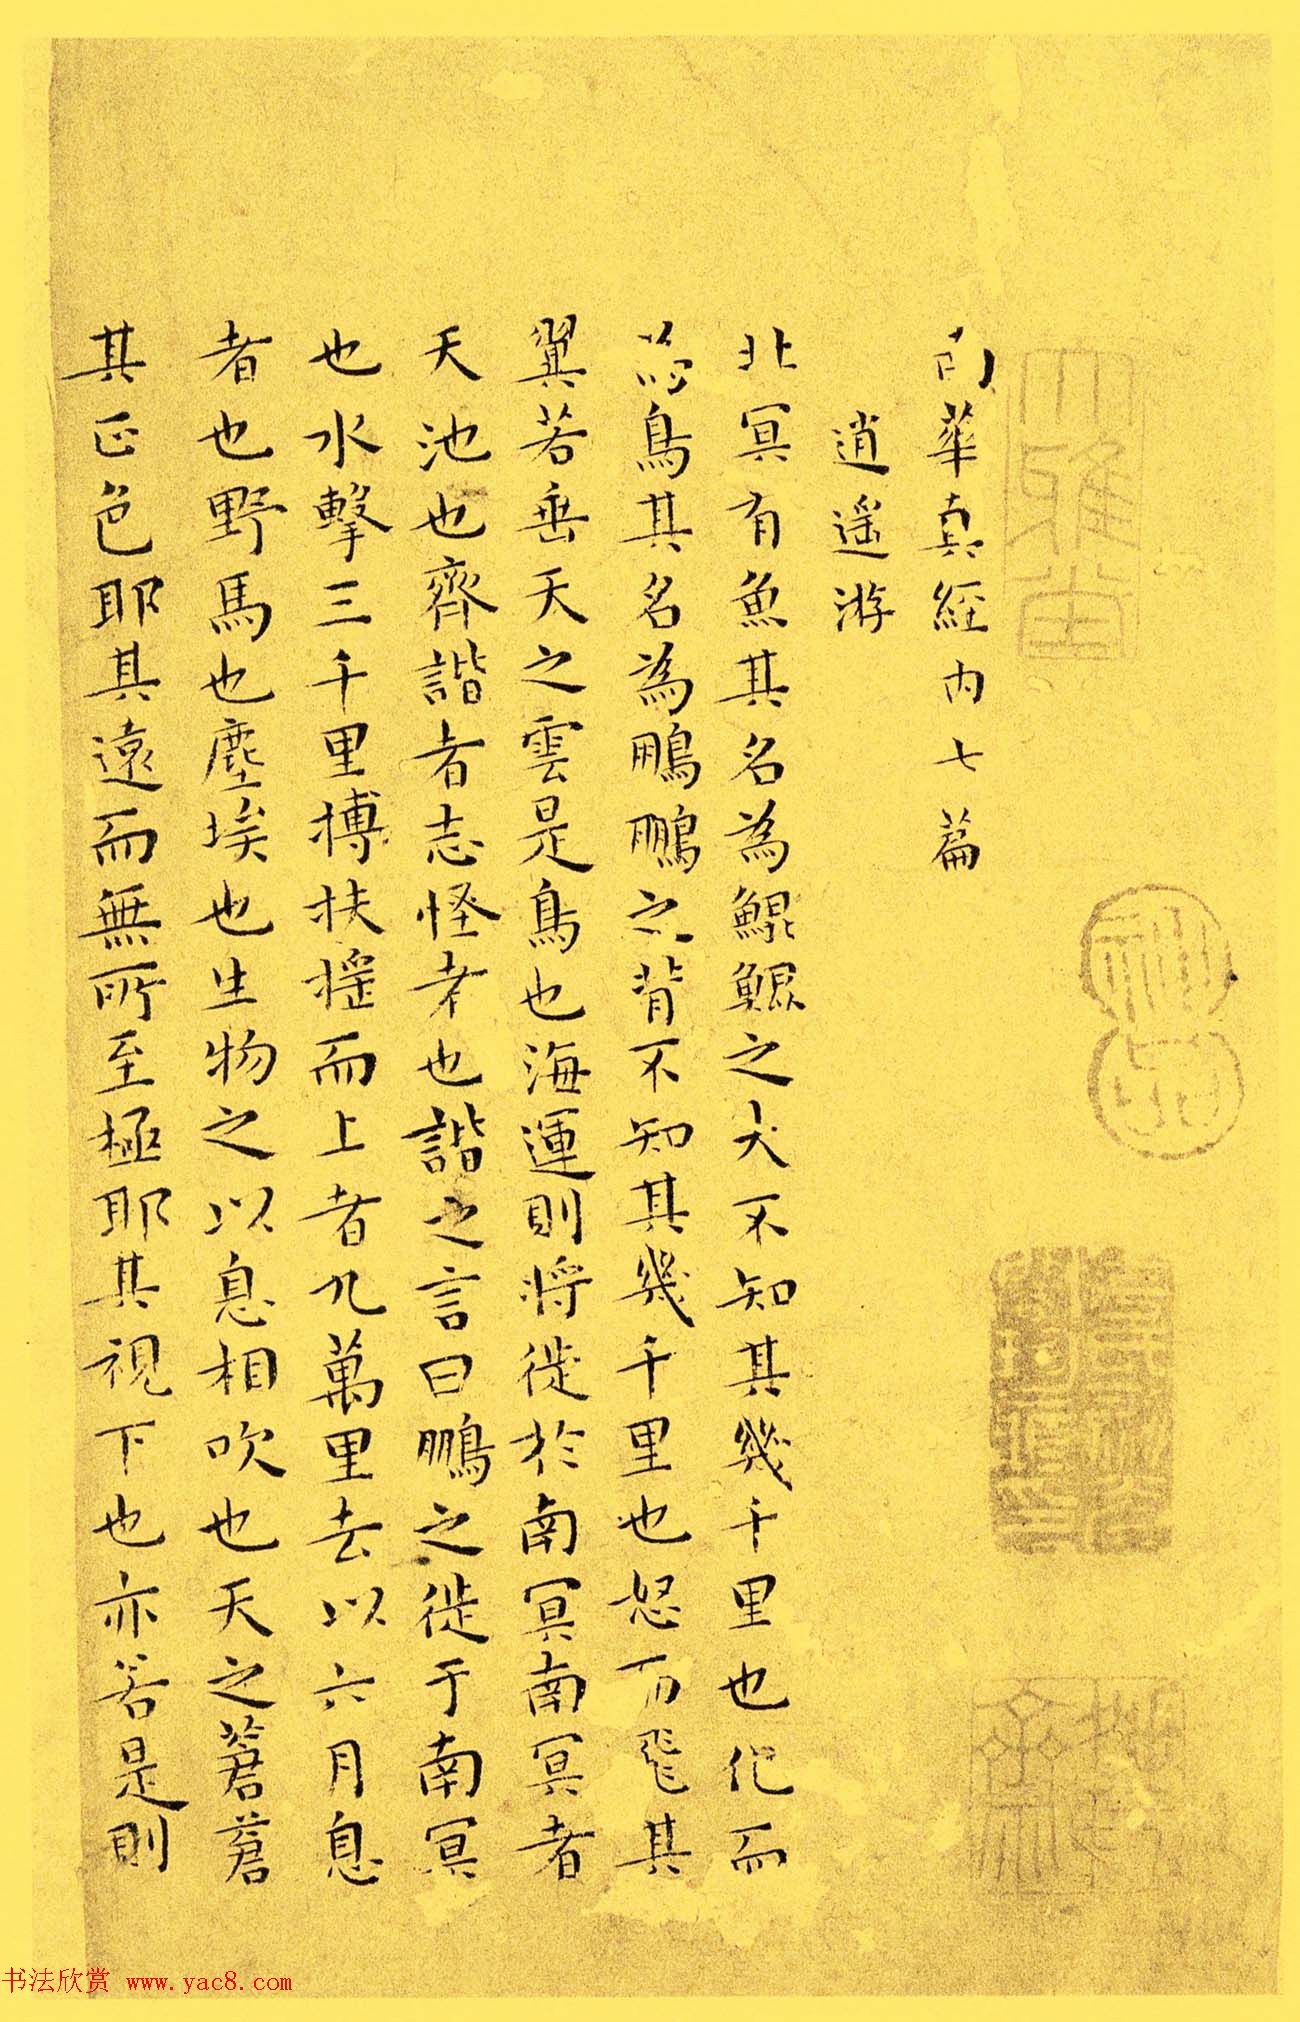 南華真經內七篇
逍遥游
北冥有魚其名為鯤鯤之大不知其幾千里也化而
為鳥其名為鵬鵬之背不知其幾千里也怒而飛其
翼若垂天之雲是鳥也海運則將徙於南冥南冥者
天池也齊諧者志怪者也諧之言曰鵬之徙于南冥
也水擊三千里摶扶摇而上者九萬里去以六月息
者也野馬也塵埃也生物之以息相吹也天之蒼蒼
其正色耶其遠而無所至極耶其視下也亦若是則
书法欣赏 www.yac8.com